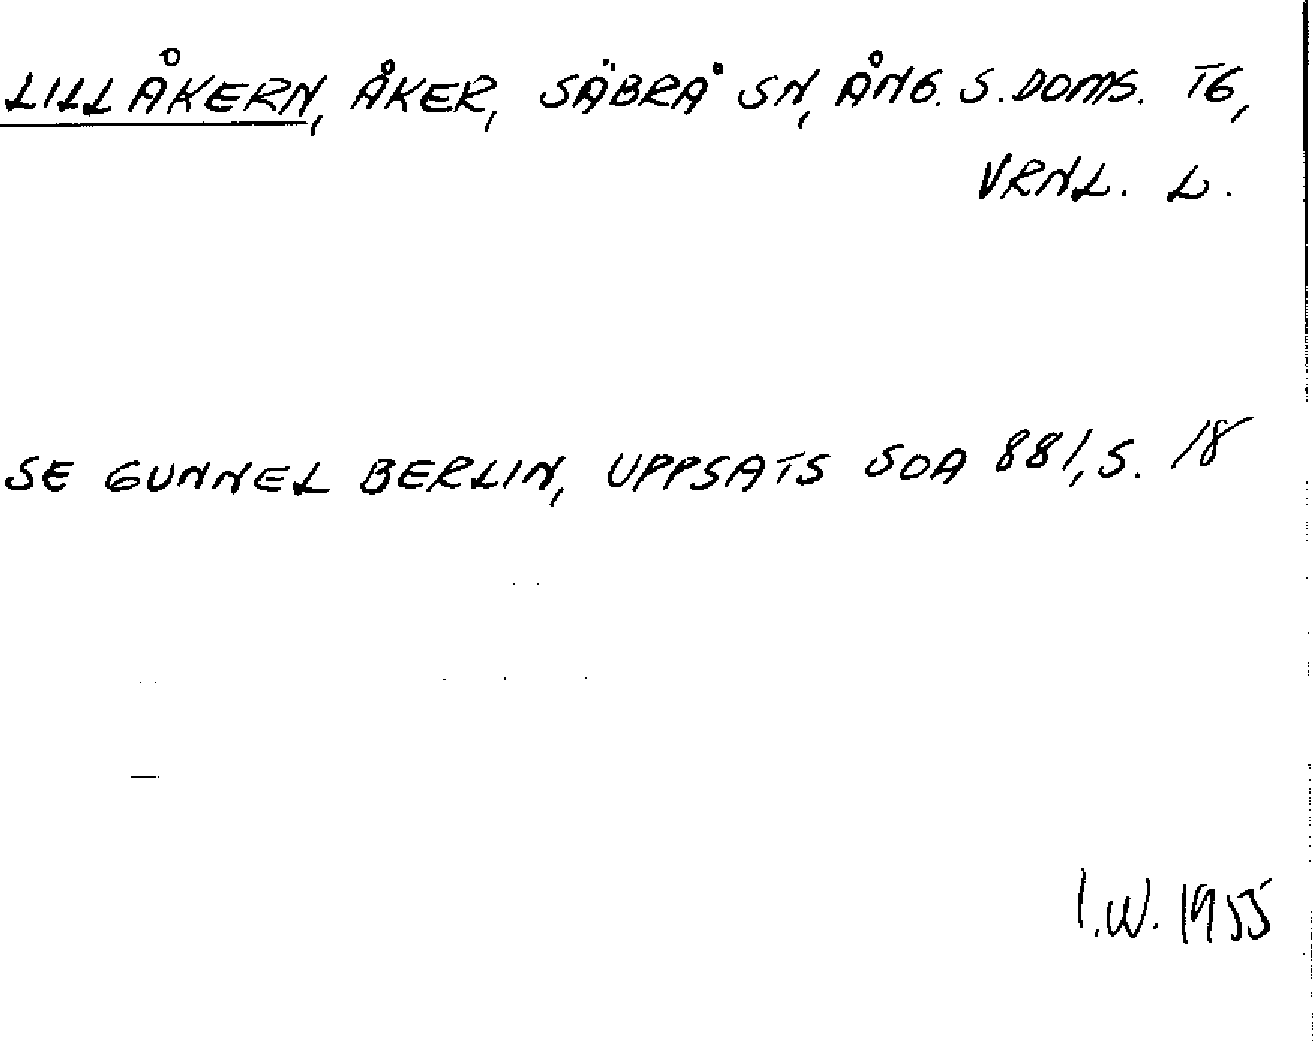 LILLÅKERN, ÅKER, SÄBRÅ SN, ÅNG. S. DOMS. TG,
VRNL. L.
SE GUNNEL BERLIN, UPPSATS SOA 881, S. 18
I.W. 1955